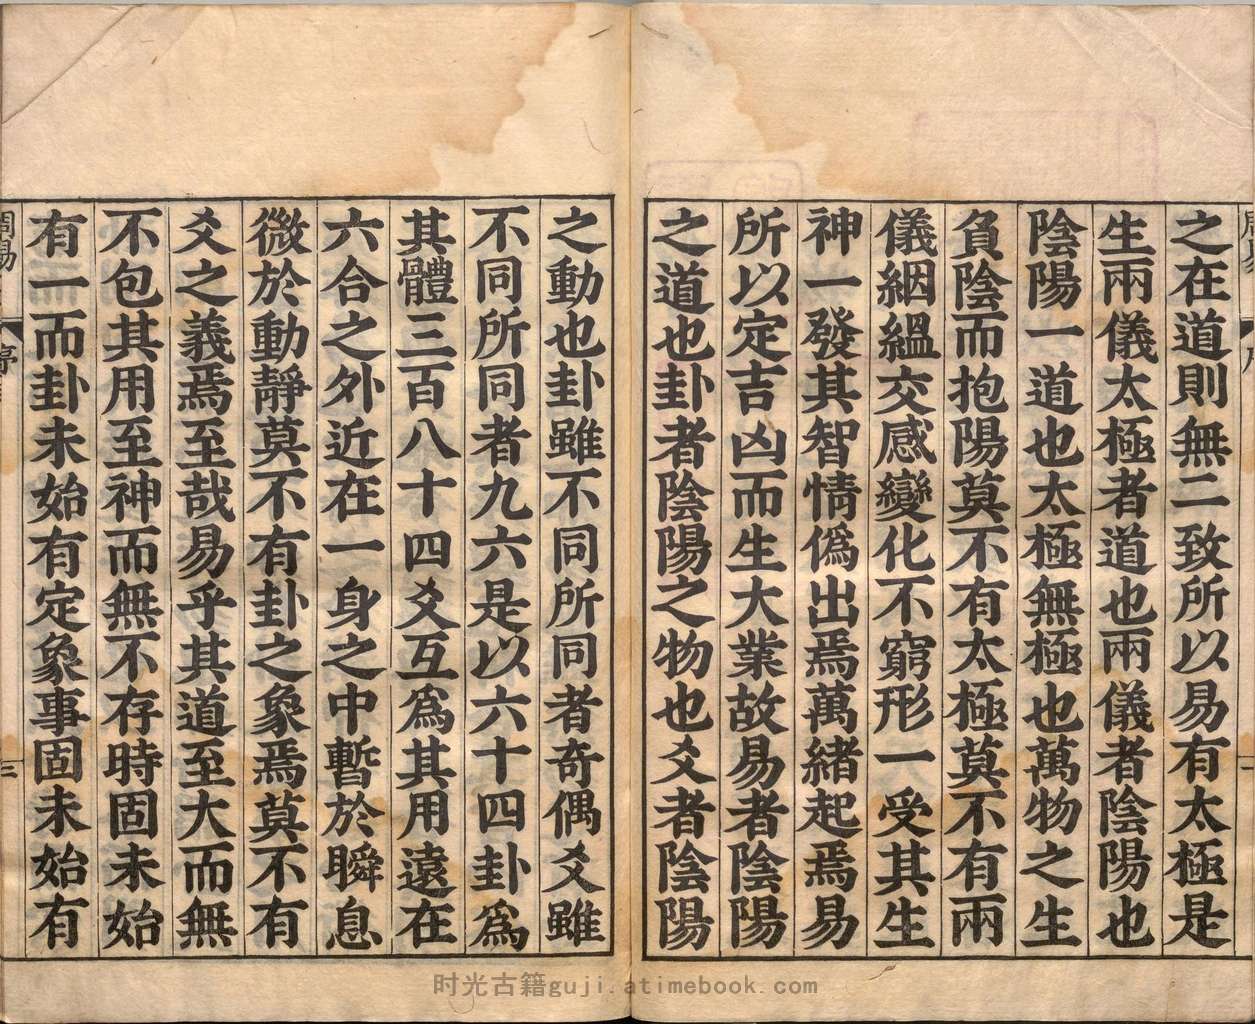 之在道則無二致所以易有太極是
生兩儀太極者道也兩儀者陰陽也
陰陽一道也太極無極也萬物之生
負陰而抱陽莫不有太極莫不有兩
儀絪縕交感變化不窮形一受其生
神一發其智情僞出焉萬緒起焉易
所以定吉凶而生大業故易者陰陽
之道也卦者陰陽之物也爻者陰陽
之動也卦雖不同所同者奇偶爻雖
不同所同者九六是以六十四卦爲
其體三百八十四爻互爲其用遠在
六合之外近在一身之中暫於瞬息
微於動靜莫不有卦之象焉莫不有
爻之義焉至哉易乎其道至大而無
不包其用至神而無不存時固未始
有一而卦未始有定象事固未始有
周易
三
时光古籍guji.atimebook.com